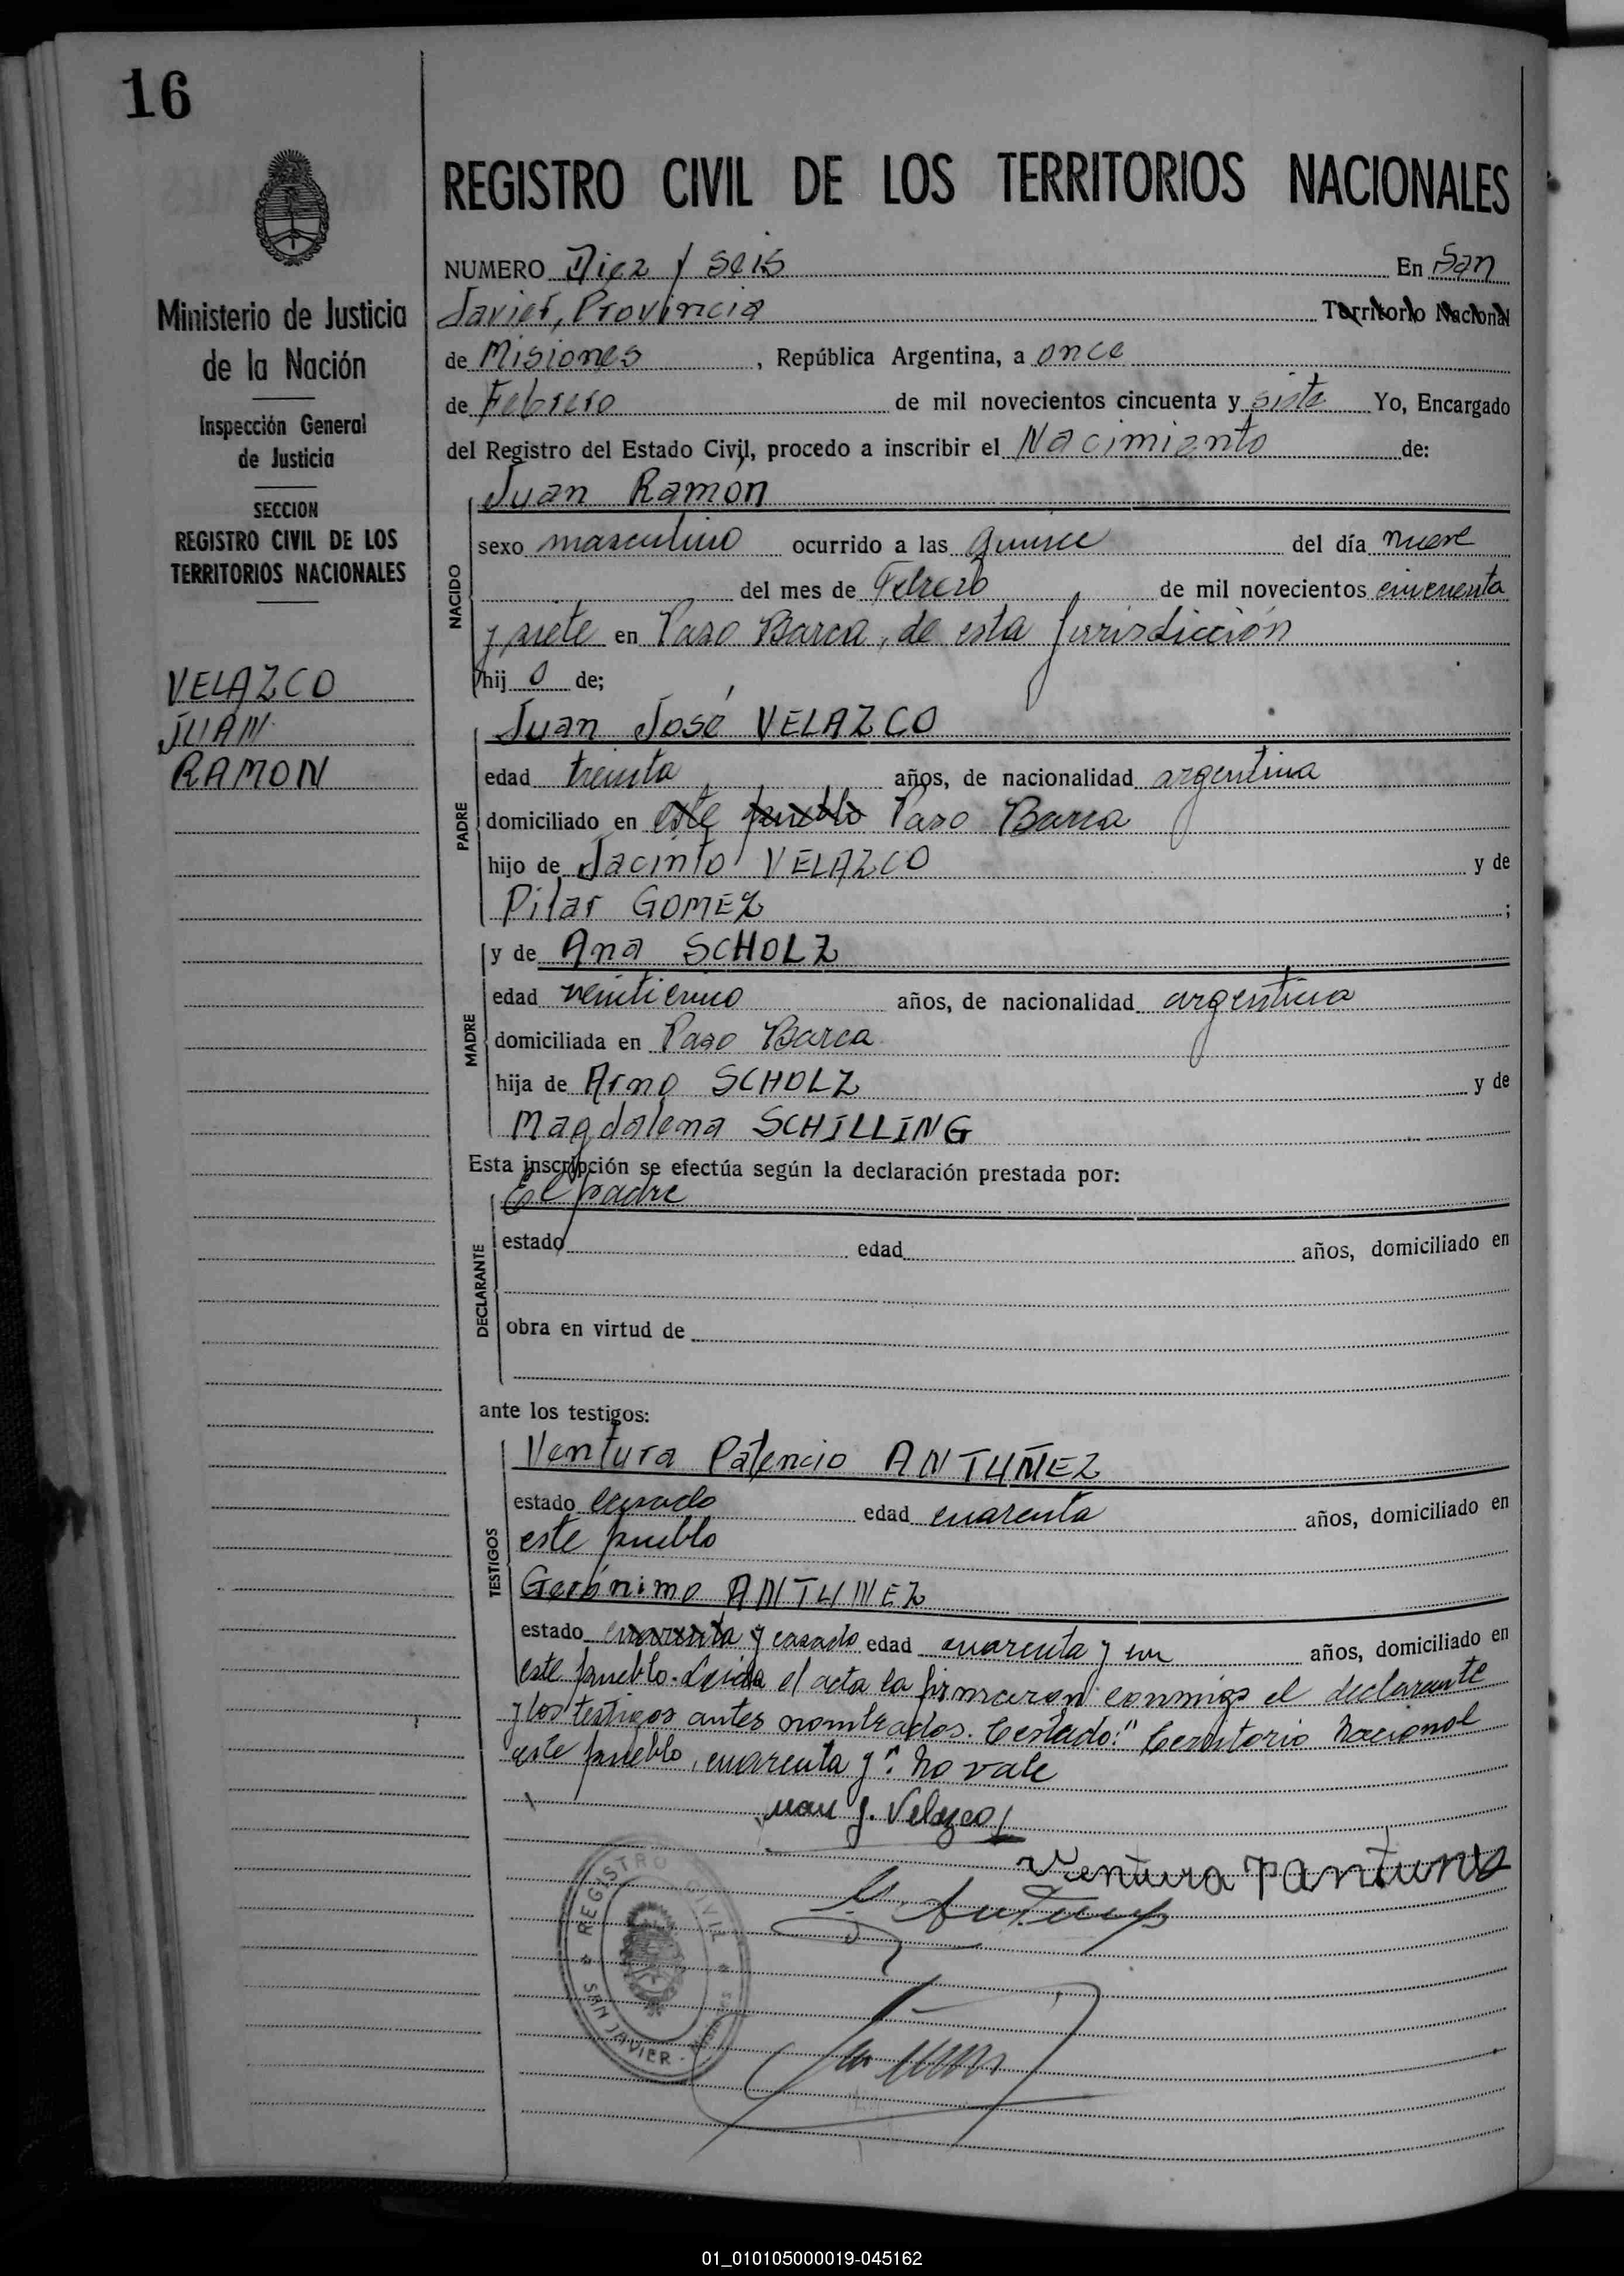 16
REGISTRO CIVIL DE LOS TERRITORIOS NACIONALES
Ministerio de Justicia
de la Nación
Inspección General
de Justicia
SECCION
REGISTRO CIVIL DE LOS
TERRITORIOS NACIONALES
VELAZCO
JUAN
RAMON
NUMERO Diez y seis En San
Javier, Provincia Territorio Nacional
de Misiones, República Argentina, a once
de Febrero de mil novecientos cincuenta y siete Yo, Encargado
del Registro del Estado Civil, procedo a inscribir el Nacimiento de:
Juan Ramon
NACIDO
sexo masculino ocurrido a las quince del día nueve
del mes de Febrero de mil novecientos cincuenta
y siete en Paso Barca, de esta Jurisdicción
hij o de;
Juan José VELAZCO
PADRE
edad treinta años, de nacionalidad argentina
domiciliado en este pueblo Paso Barca
hijo de Jacinto VELAZCO y de
Pilar GOMEZ ;
y de Ana SCHOLZ
MADRE
edad años, de nacionalidad argentina
domiciliada en Paso Barca
hija de Arno SCHOLZ y de
Magdalena SCHILLING
Esta inscripción se efectúa según la declaración prestada por:
El padre
DECLARANTE
estado edad años, domiciliado en
obra en virtud de
ante los testigos:
Ventura Patencio ANTUNEZ
TESTIGOS
estado casado edad cuarenta años, domiciliado en
este pueblo
Gerónimo ANTUNEZ
estado cuarenta y casado edad cuarenta y un años, domiciliado en
este pueblo. Leida el acta la firmaron conmigo el declarante
y los testigos antes nombrados. Testado: "Territorio Nacional
este pueblo, cuarenta y". No vale
Juan J. Velazco
Ventura P Antunes
G. Antunez
REGISTRO CIVIL
SAN JAVIER
01_010105000019-045162